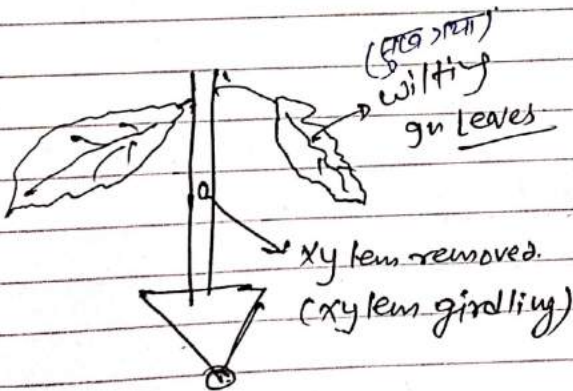 (सुख गया)
wilting
in Leaves
xylem removed.
(xylem girdling)